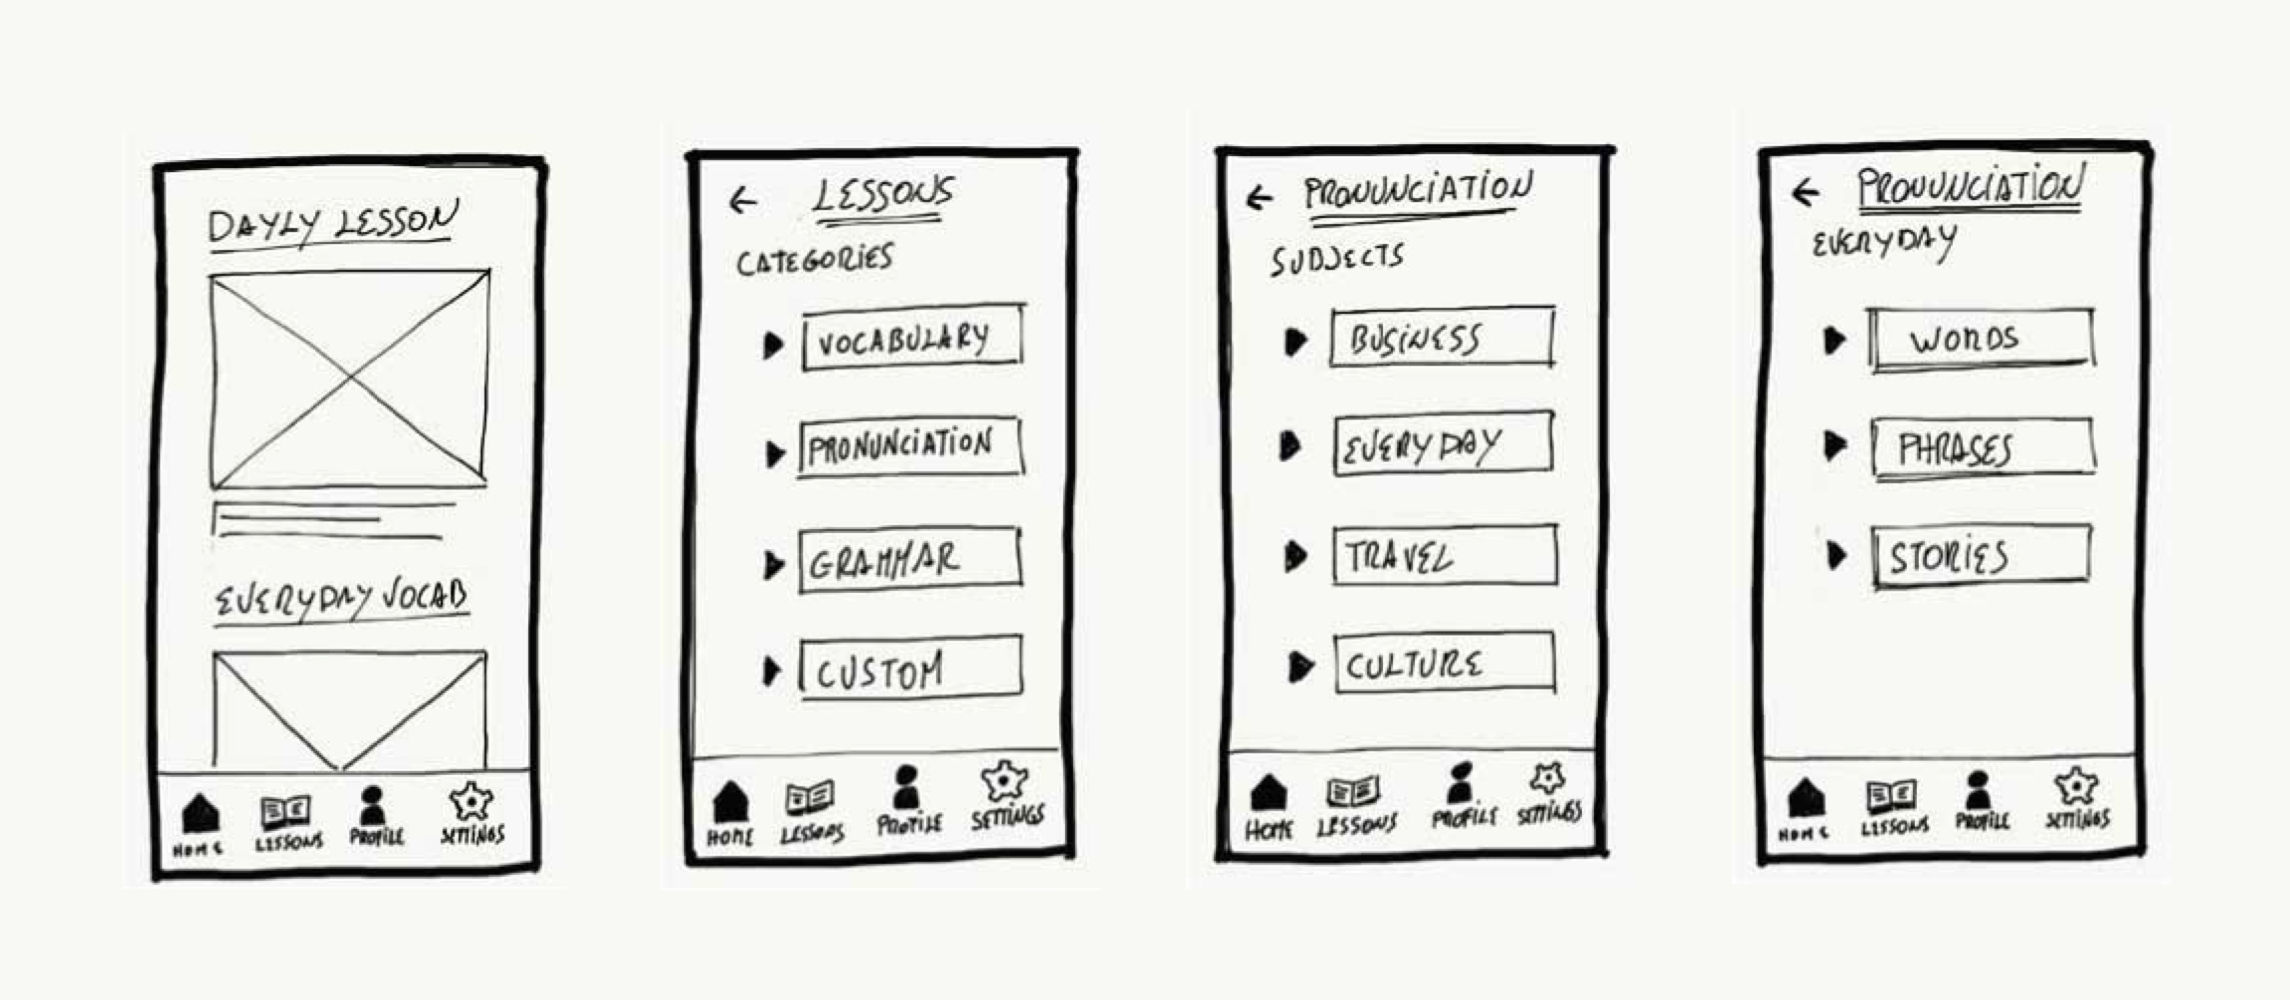 DAYLY LESSON
EVERYDAY VOCAB
HOME LESSONS PROFILE SETTINGS
← LESSONS
CATEGORIES
VOCABULARY
PRONUNCIATION
GRAMMAR
CUSTOM
HOME LESSONS PROFILE SETTINGS
← PRONUNCIATION
SUBJECTS
BUSINESS
EVERYDAY
TRAVEL
CULTURE
HOME LESSONS PROFILE SETTINGS
← PRONUNCIATION
EVERYDAY
WORDS
PHRASES
STORIES
HOME LESSONS PROFILE SETTINGS